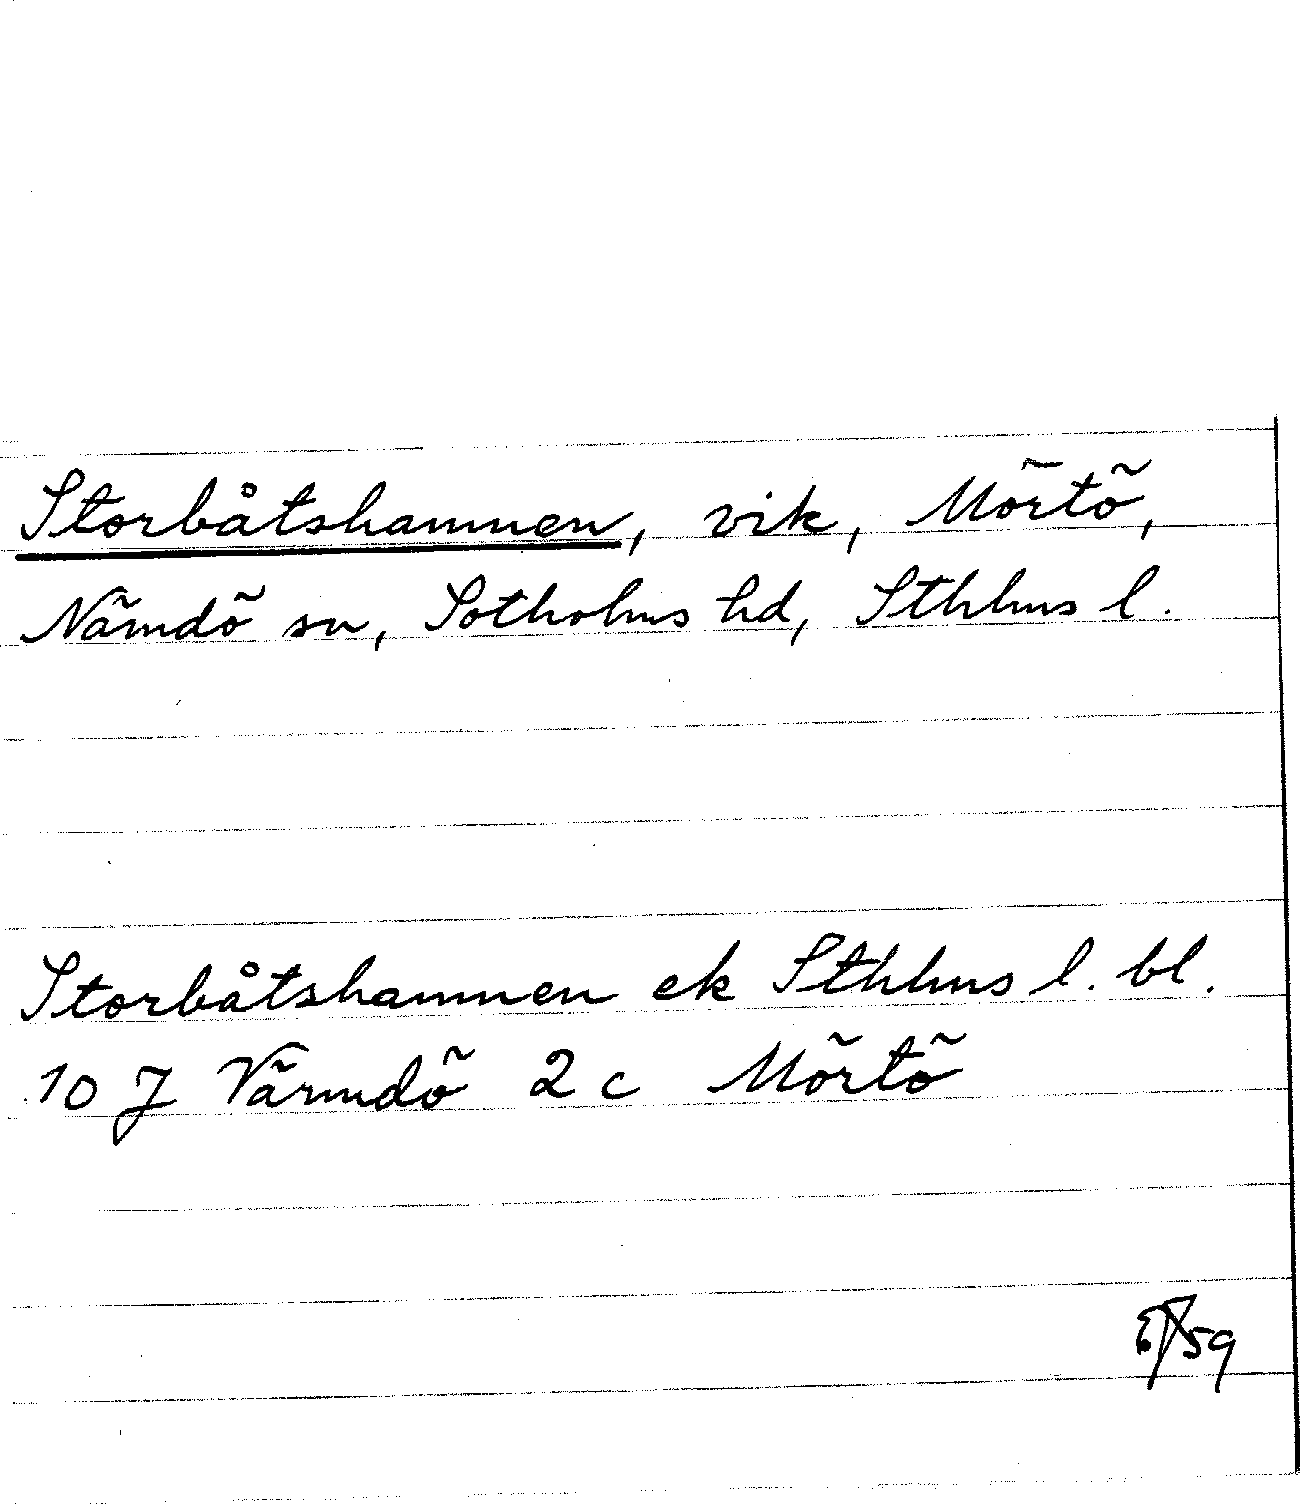 Storbåtshamnen, vik, Mörtö,
Nämdö sn, Sotholms hd, Sthlms l.
Storbåtshamnen ek Sthlms l. bl.
10 J Värmdö 2 c Mörtö
59